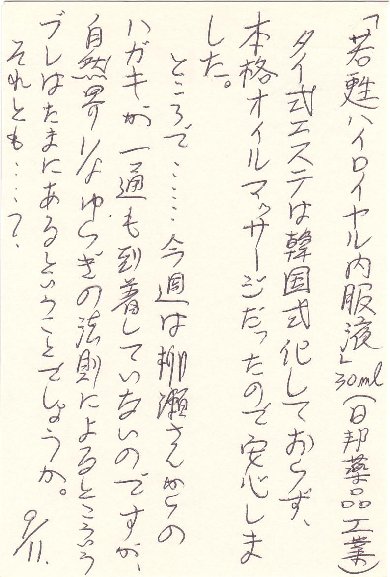 「若甦ハイロイヤル内服液」30ml(日邦薬品工業)
タイ式エステは韓国式化しておらず、
本格オイルマッサージだったので安心しま
した。
ところで……今週は柳瀬さんからの
ハガキが一通も到着していないのですが、
自然界1/fなゆらぎの法則によるとこういう
ブレはたまにあるということでしょうか。
それとも……?
9/11.